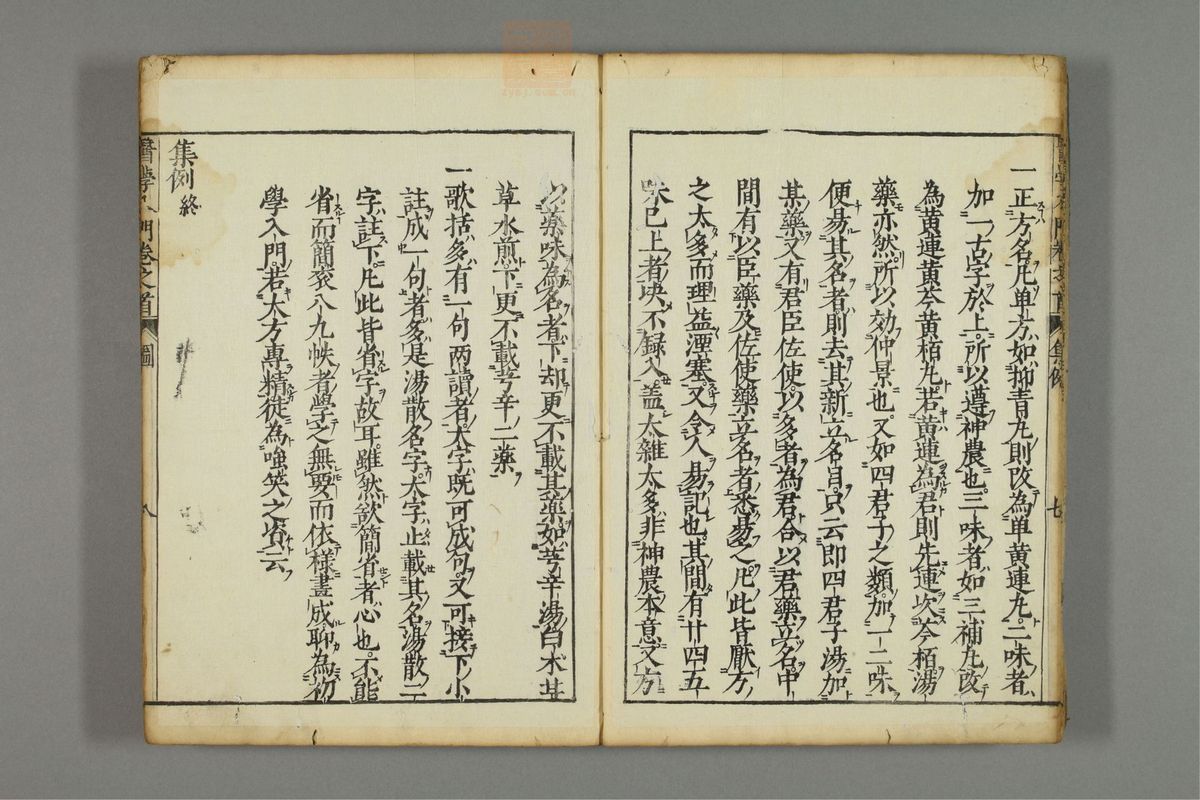 一正方名凡单方如抑青丸則改為单黄連丸二味者
加一古字於上所以遵神農也三味者如三補丸改
為黄連黄芩黄栢丸若黄連為君則先連次芩栢湯
藥亦然所以効仲景也又如四君子之類加一二味
便易其名者則去其新立名目只云即四君子湯加
某藥又有君臣佐使以多者為君合以君藥立名中
間有以臣藥及佐使藥立名者悉易之凡此皆厭方
之太多而理益湮塞又令人易記也其間有廿四五
味已上者决不録入盖太雜太多非神農本意又方
以藥味為名者下却更不載其藥如芎辛湯白术甘
草水煎下更不載芎辛二藥
一歌括多有一句两讀者大字既可成句又可接下小
註成一句者多是湯散名字大字止載其名湯散二
字註下凡此皆省字故耳雖然欲簡省者心也不能
省而簡袠八九帙者學之無要而依様畫成聊為初
學入門若大方專精徒為嗤笑之資云
集例終
醫學入門卷之首 集例 七
醫學入門卷之首 圖 八
zysj.com.cn